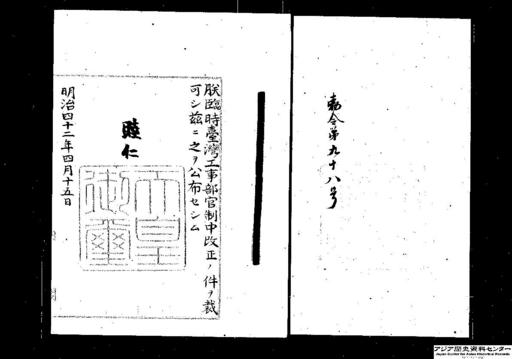 勅令第九十八号
朕臨時臺灣工事部官制中改正ノ件ヲ裁
可シ茲ニ之ヲ公布セシム
睦仁
天皇
御璽
明治四十二年四月十五日
アジア歴史資料センター
Japan Center for Asian Historical Records